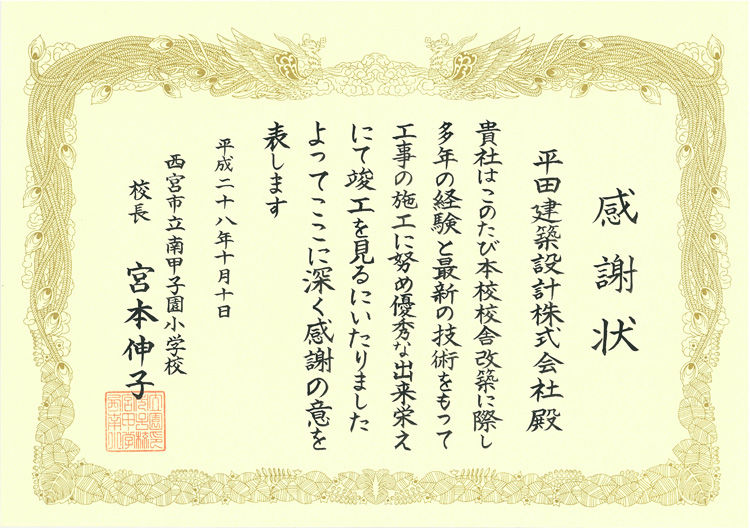 感謝状
平田建築設計株式会社殿
貴社はこのたび本校校舎改築に際し
多年の経験と最新の技術をもって
工事の施工に努め優秀な出来栄え
にて竣工を見るにいたりました
よってここに深く感謝の意を
表します
平成二十八年十月十日
西宮市立南甲子園小学校
校長 宮本伸子